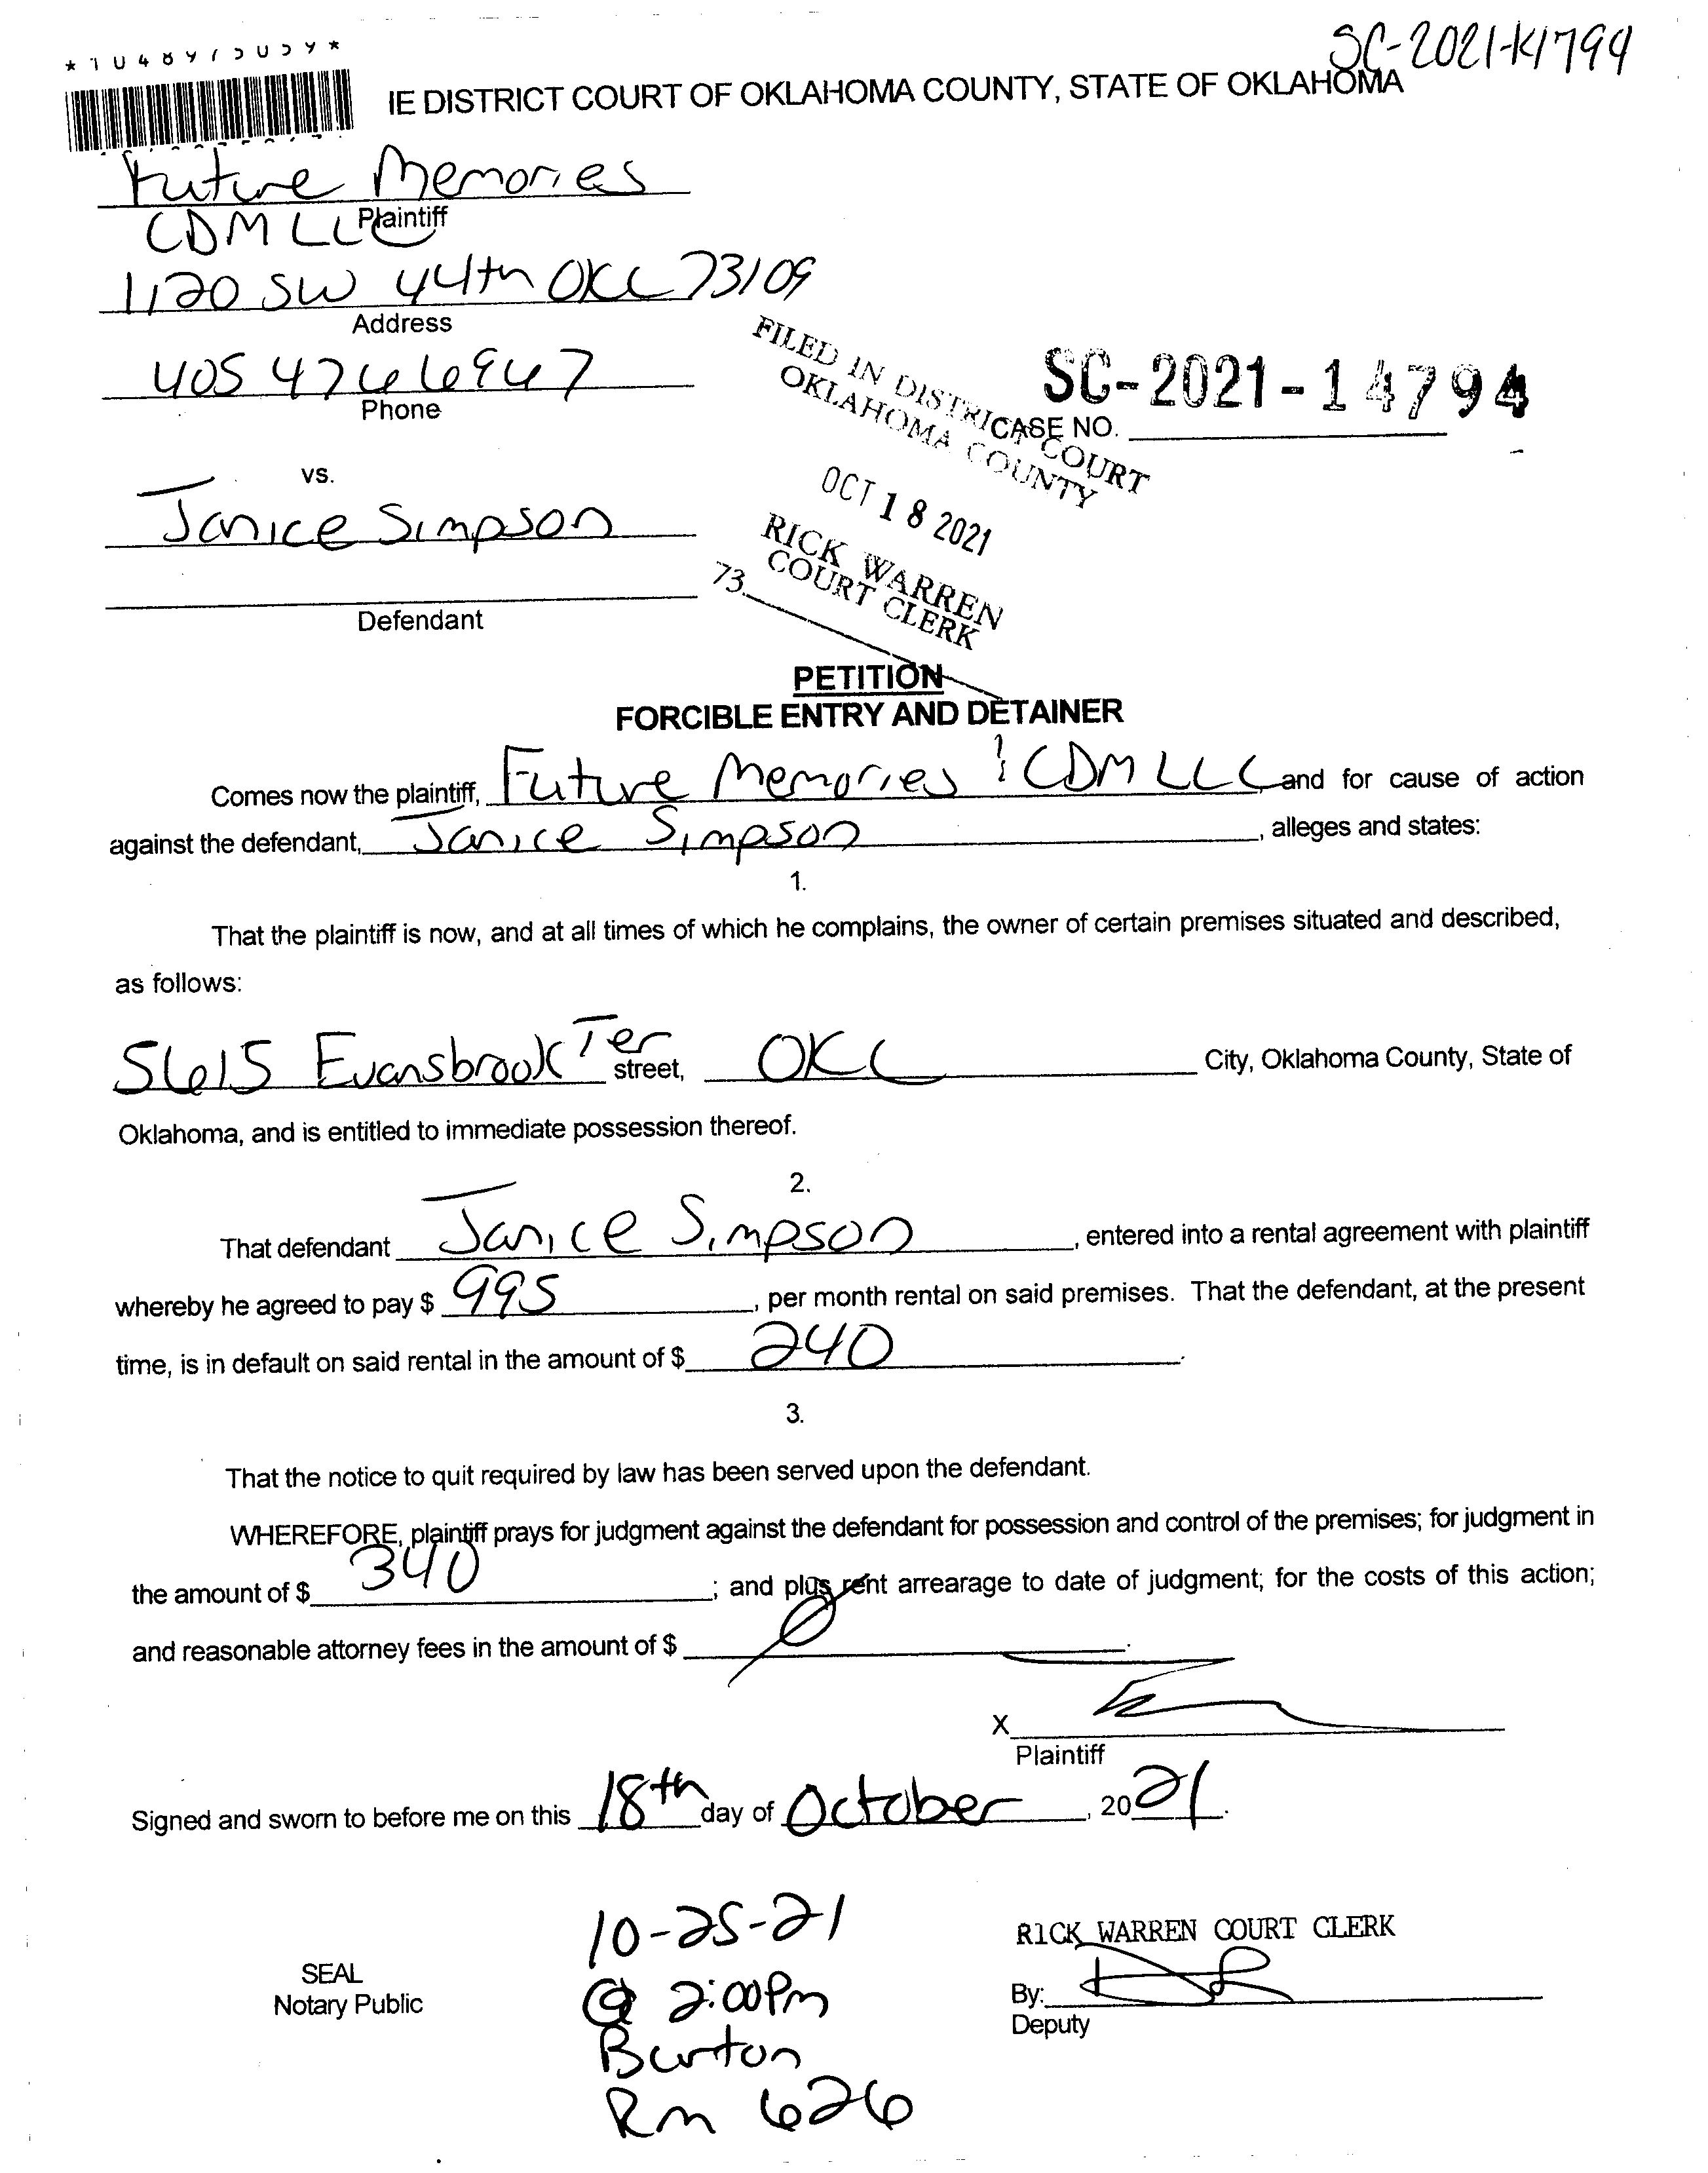 SC-2021-14794
IE DISTRICT COURT OF OKLAHOMA COUNTY, STATE OF OKLAHOMA
Future Memories
Plaintiff
CDM LLC
1120 SW 44th OKC 73109
Address
405 476 6947
Phone
FILED IN DISTRICT COURT
OKLAHOMA COUNTY
SC-2021-14794
CASE NO.
OCT 18 2021
vs.
Janice Simpson
RICK WARREN
COURT CLERK
73
Defendant
PETITION
FORCIBLE ENTRY AND DETAINER
Comes now the plaintiff, Future Memories & CDM LLC and for cause of action
against the defendant, Janice Simpson, alleges and states:
1.
That the plaintiff is now, and at all times of which he complains, the owner of certain premises situated and described,
as follows:
5615 Evansbrook Ter street, OKC City, Oklahoma County, State of
Oklahoma, and is entitled to immediate possession thereof.
2.
That defendant Janice Simpson, entered into a rental agreement with plaintiff
whereby he agreed to pay $ 995, per month rental on said premises. That the defendant, at the present
time, is in default on said rental in the amount of $ 240.
3.
That the notice to quit required by law has been served upon the defendant.
WHEREFORE, plaintiff prays for judgment against the defendant for possession and control of the premises; for judgment in
the amount of $ 340; and plus rent arrearage to date of judgment; for the costs of this action;
and reasonable attorney fees in the amount of $ 0.
X
Plaintiff
Signed and sworn to before me on this 18th day of October, 2021.
10-25-21
@ 2:00Pm
Burton
Rm 626
SEAL
Notary Public
RICK WARREN COURT CLERK
By:
Deputy